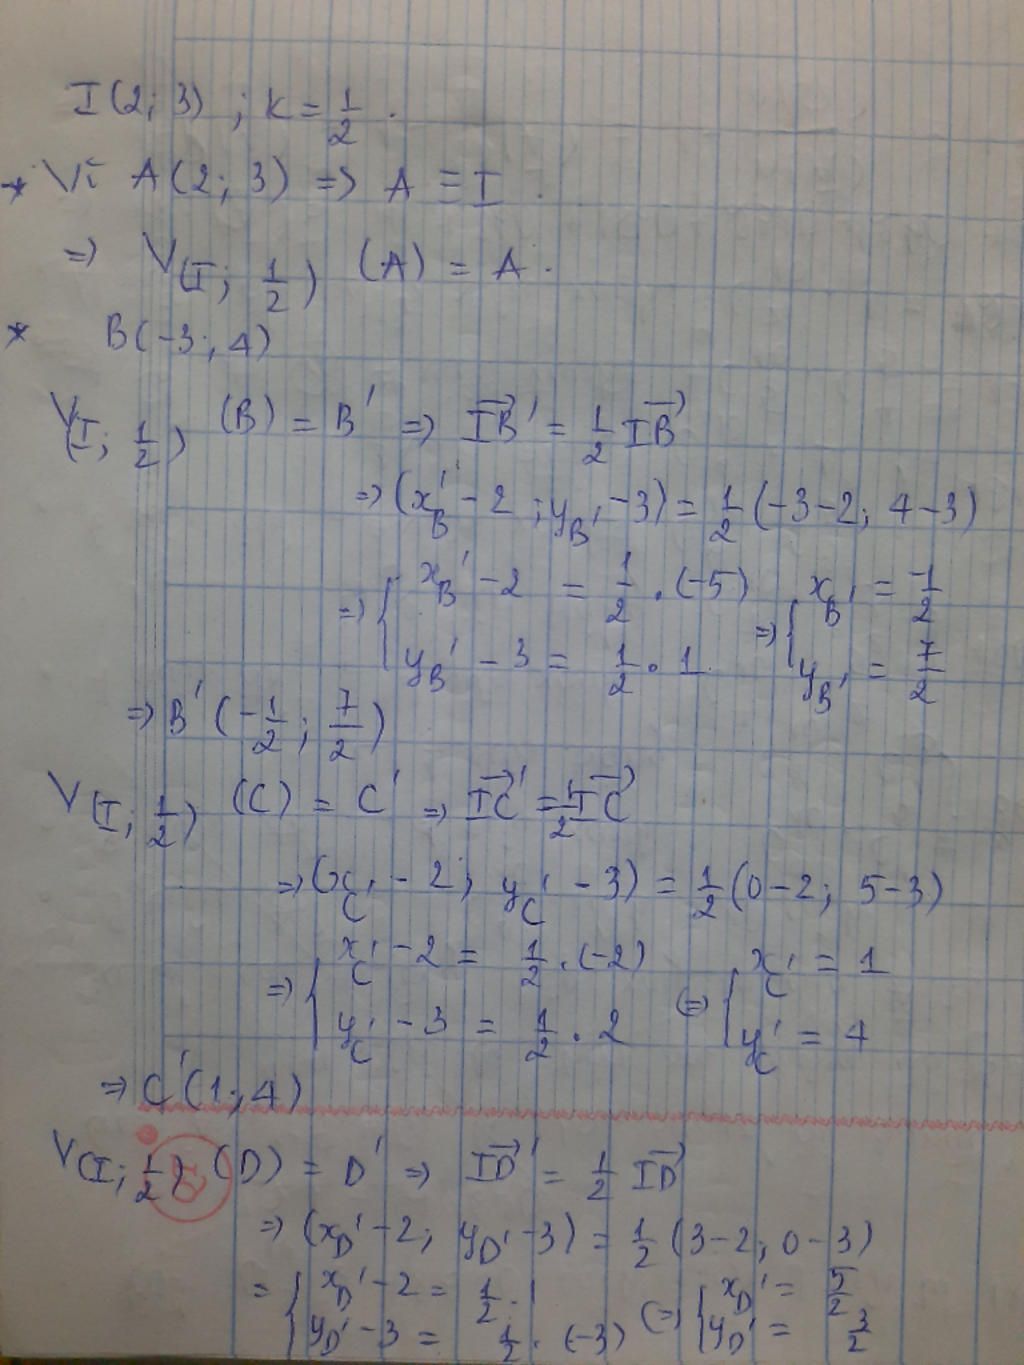 I(2; 3) ; k = 1/2 .
* Vì A(2; 3) => A ≡ I .
=> V(I; 1/2) (A) = A .
* B(-3; 4)
V(I; 1/2) (B) = B' => IB⃗' = 1/2 IB⃗
=> (x_B' - 2 ; y_B' - 3) = 1/2 (-3-2; 4-3)
=> { x_B' - 2 = 1/2 . (-5) => { x_B' = -1/2
y_B' - 3 = 1/2 . 1 y_B' = 7/2
=> B' (-1/2 ; 7/2)
V(I; 1/2) (C) = C' => IC⃗' = 1/2 IC⃗
=> (x_C' - 2; y_C' - 3) = 1/2 (0-2; 5-3)
=> { x_C' - 2 = 1/2 . (-2) <=> { x_C' = 1
y_C' - 3 = 1/2 . 2 y_C' = 4
=> C'(1; 4)
V(I; 1/2) (D) = D' => ID⃗' = 1/2 ID⃗
=> (x_D' - 2; y_D' - 3) = 1/2 (3-2; 0-3)
= { x_D' - 2 = 1/2 . 1 <=> { x_D' = 5/2
y_D' - 3 = 1/2 . (-3) y_D' = 3/2